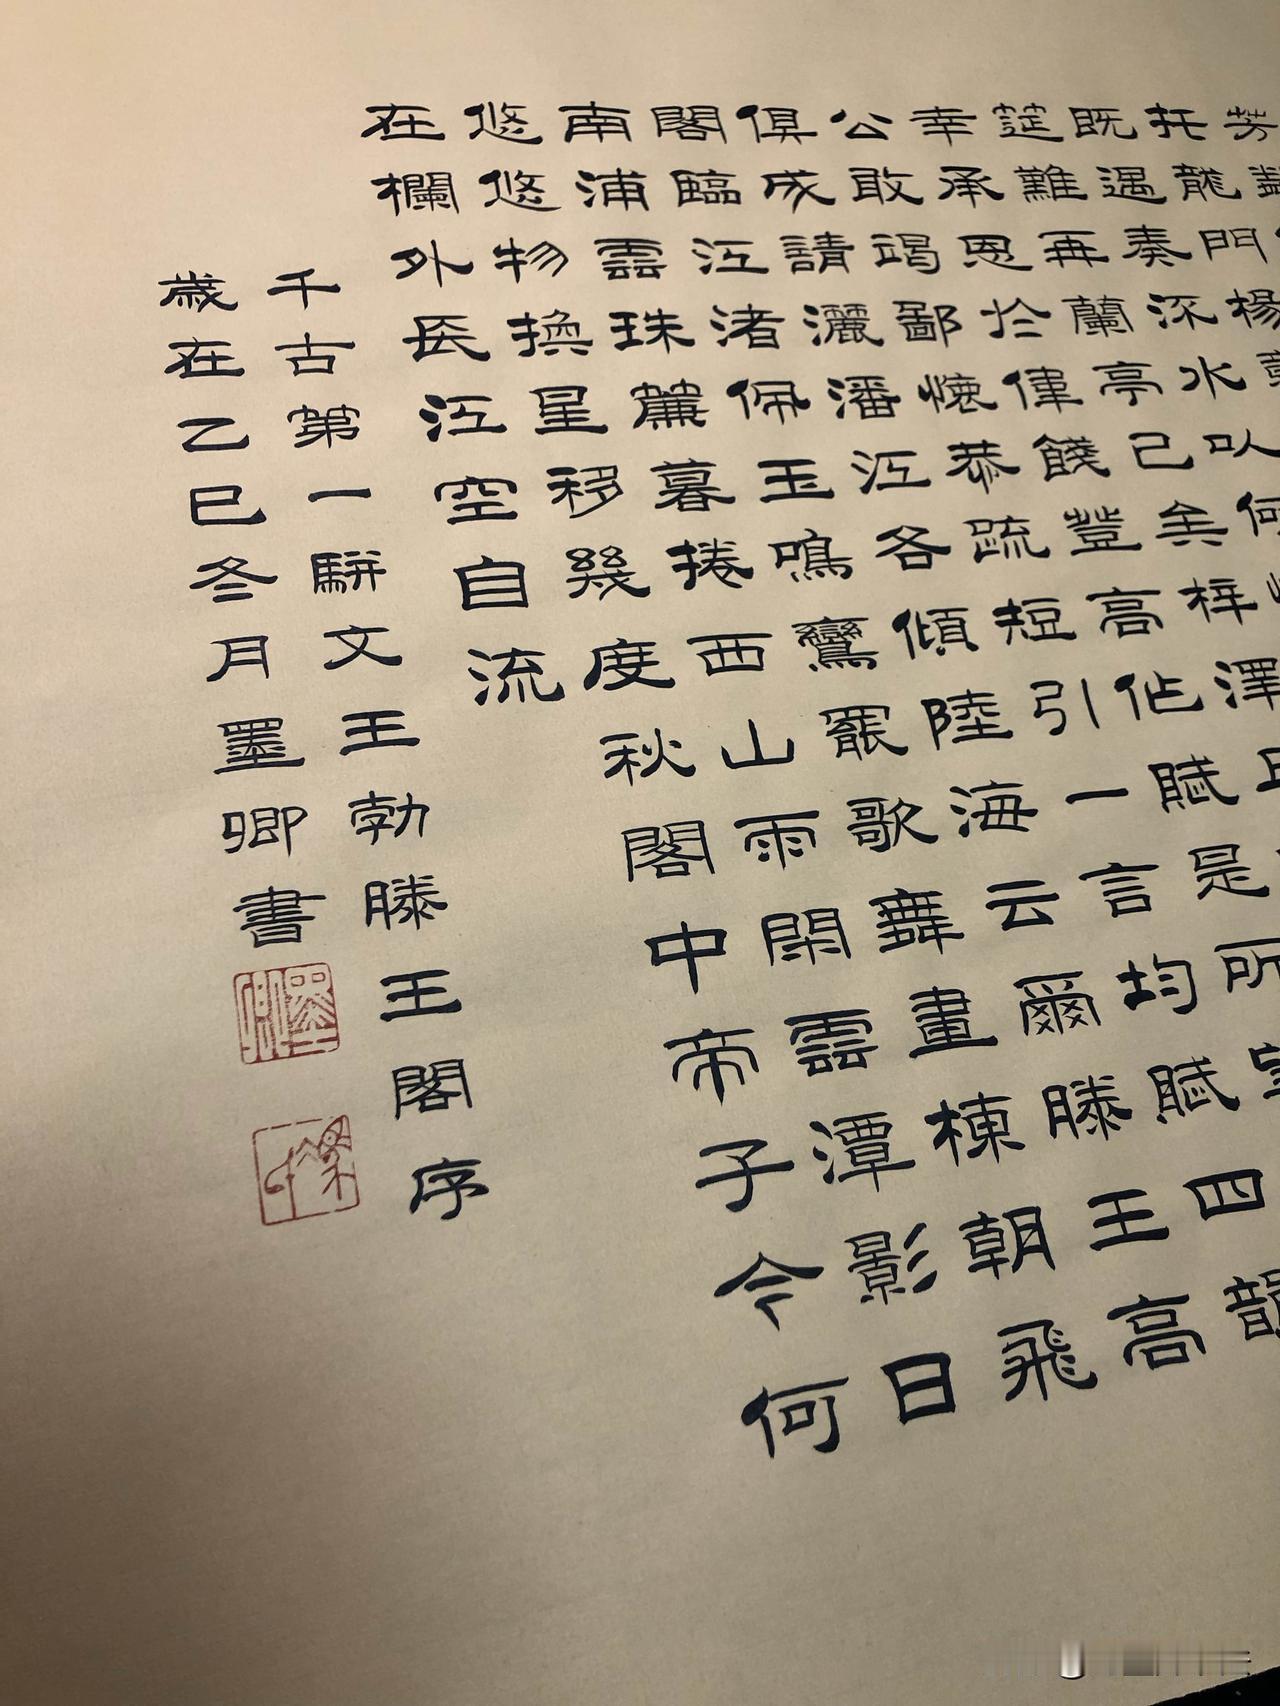 芳
托龍門楊
既遇奏流水以何
筵難再蘭亭已矣梓澤
幸承恩於偉餞登高作賦是所
公敢竭鄙懷恭疏短引一言均賦四韻
俱成請灑潘江各傾陸海云爾滕王高
閣臨江渚佩玉鳴鸞罷歌舞畫棟朝飛
南浦雲珠簾暮捲西山雨閑雲潭影日
悠悠物換星移幾度秋閣中帝子今何
在欄外長江空自流
千古第一駢文王勃滕王閣序
歲在乙巳冬月墨卿書
墨卿